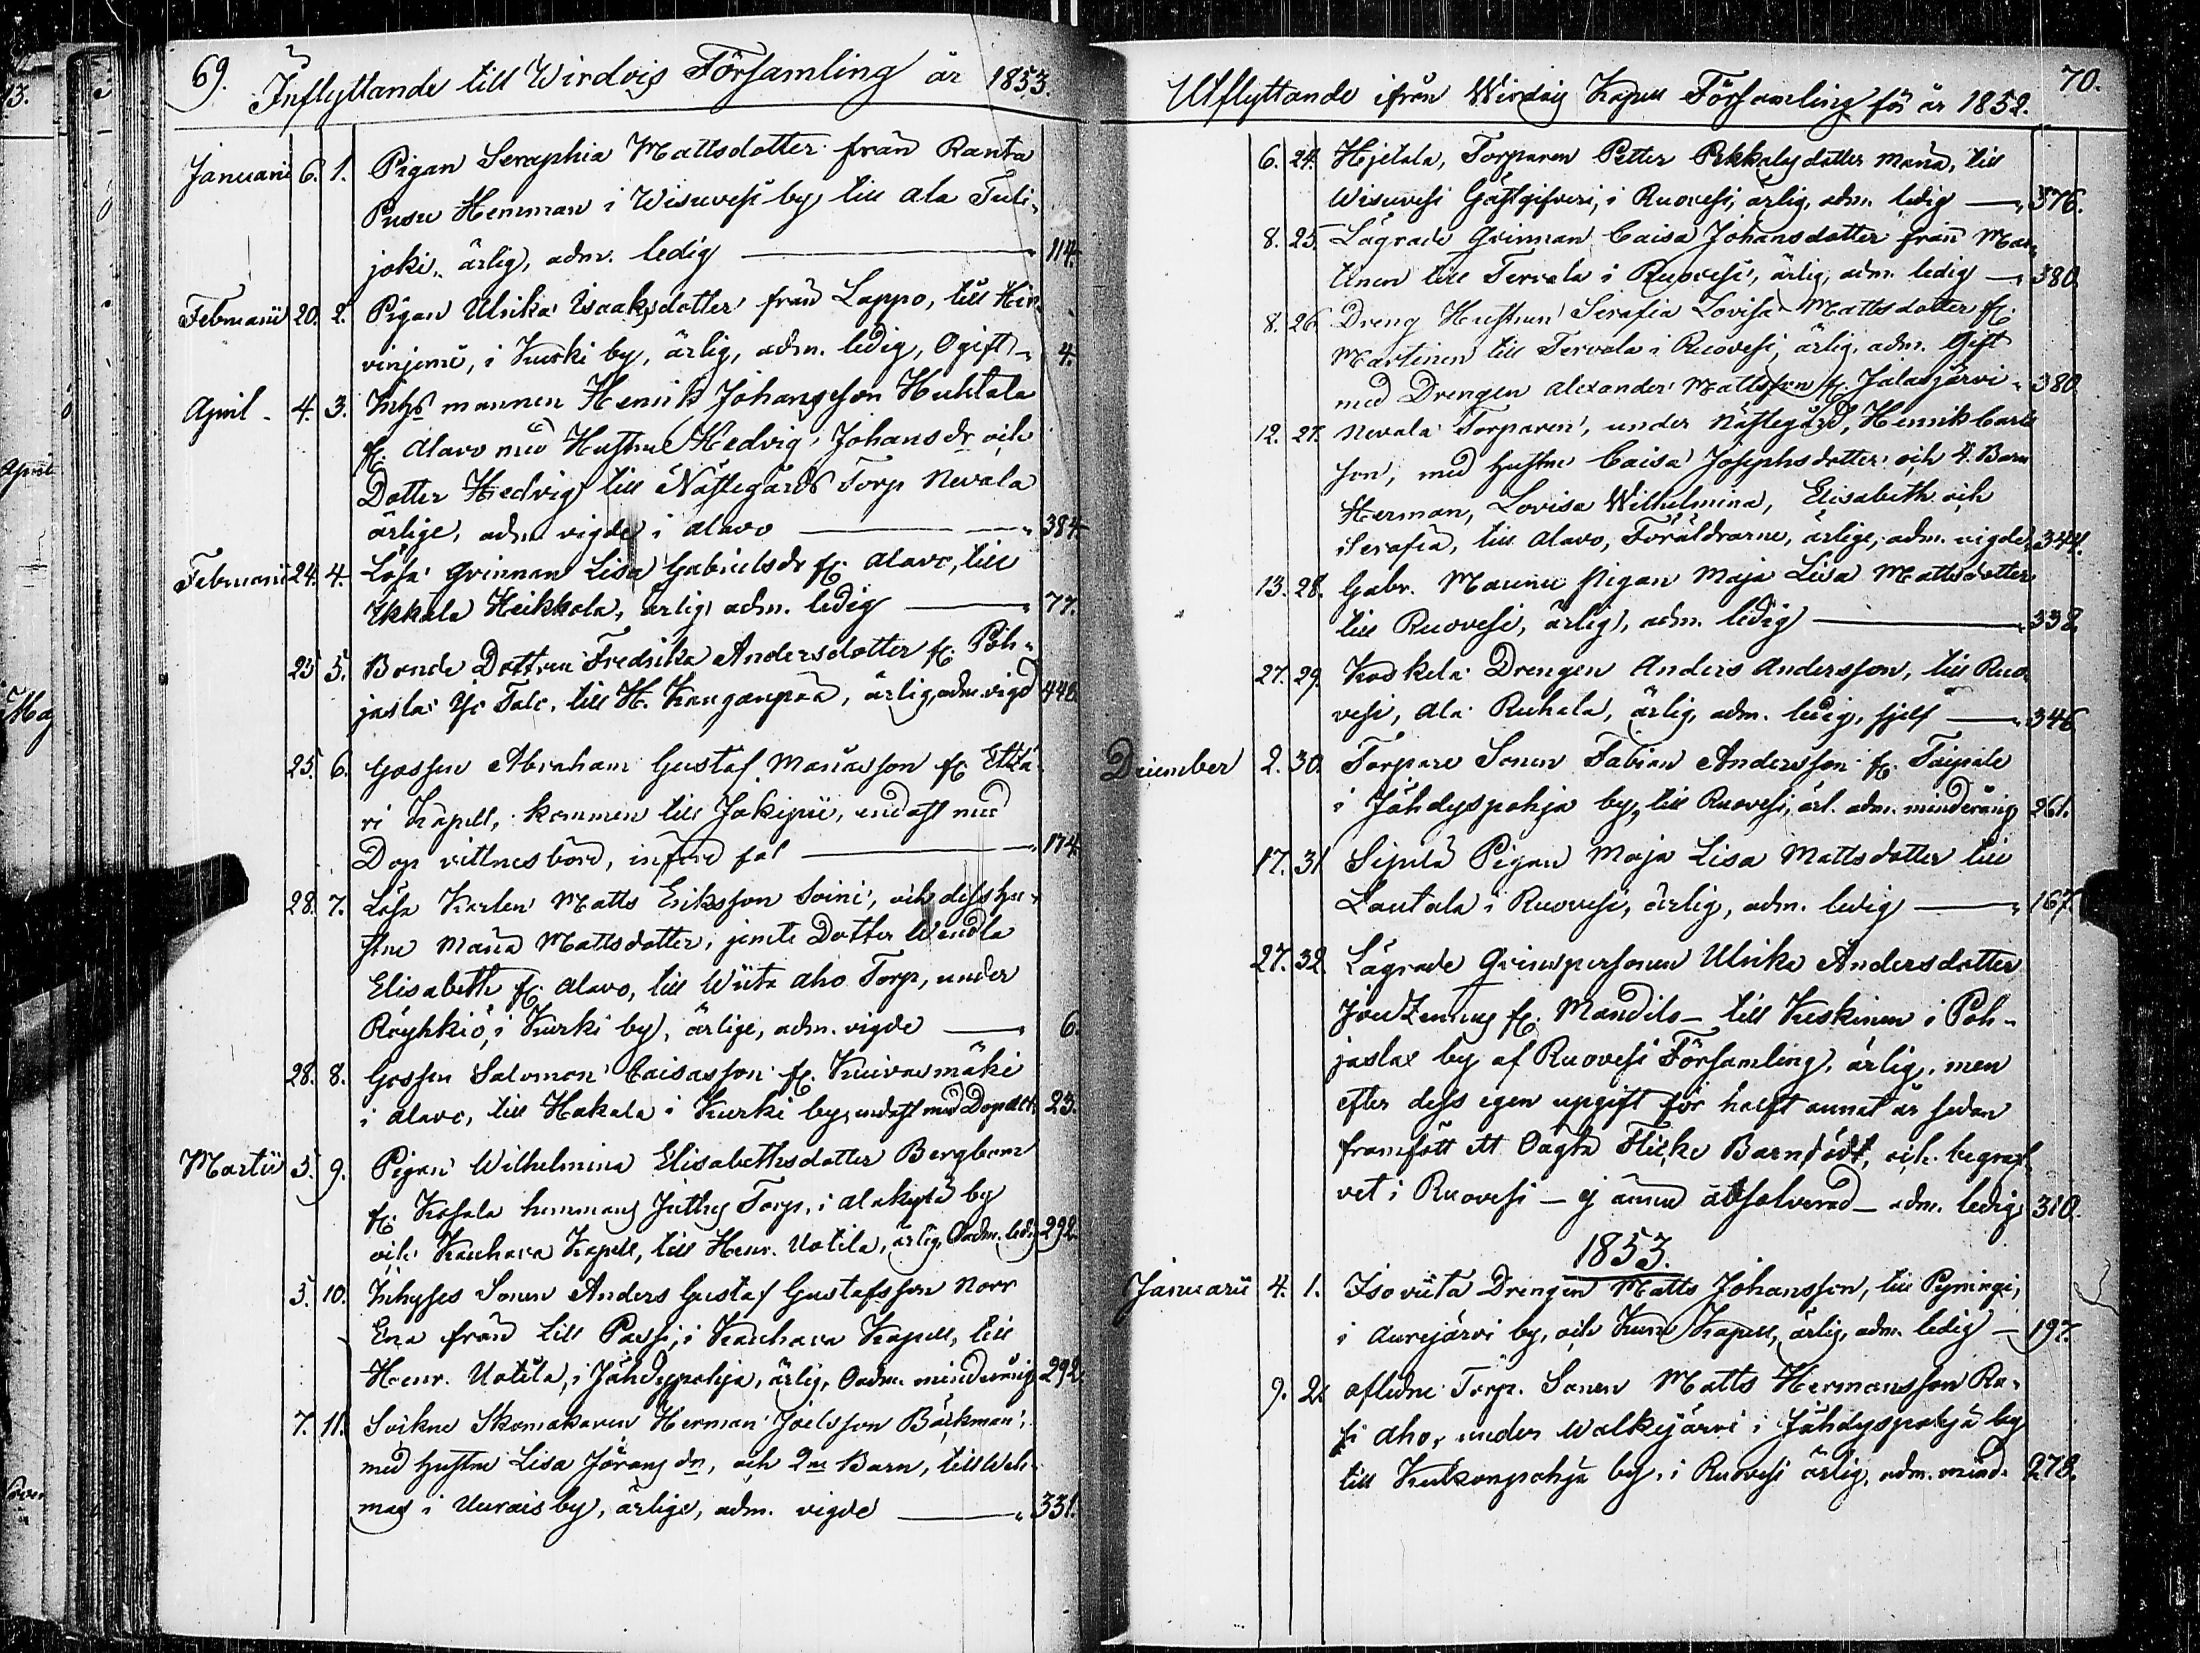 69.
Inflyttande till Wirdois Församling år 1853.
Januarii 6. 1. Pigan Seraphia Mattsdotter från Ranta
Pusu Hemman i Wisuvesi by till Ala Tuli-
joki, ärlig, adm. ledig 114.
Februarii 20. 2. Pigan Ulrika Isaaksdotter från Lappo, till Hir-
vinjemi, i Kurki by, ärlig, adm. ledig, Ogift 4.
April 4. 3. Inhs mannen Henrik Johansson Huhtala
fr. Alavo med Hustru Hedvig Johansdr och
Dotter Hedvig till Nästegårds Torp Nevala
ärlige, adm. vigde i Alavo 384.
Februarii 24. 4. Lösa qvinnan Lisa Gabrielsdr fr. Alavo, till
Ikkala Heikkola, ärlig, adm. ledig 77.
25 5. Bonde Dottren Fredrika Andersdotter fr. Poh-
jaslax Yli Talo, till H. Kangaspää, ärlig, adm. vigd 448.
25. 6. Gossen Abraham Gustaf Mariasson fr. Etzä-
ri Kapell, kommen till Jokipii, endast med
Dop vittnesbörd, införd fol 174.
28. 7. Lösa Karlen Matts Eriksson Soini, och dess hu-
stru Maria Mattsdotter, jemte Dotter Wendla
Elisabeth fr. Alavo, till Wiita aho Torp, under
Röyhkiö, i Kurki by, ärlige, adm. vigde 6.
28. 8. Gossen Salomon Caisasson fr. Kuivasmäki
i Alavo, till Hakala i Kurki by, endast med Dopatt. 23.
Martii 5. 9. Pigan Wilhelmina Elisabethsdotter Bergbom
fr. Kosala hemmans Torp, i Alakylä by
och Kauhava Kapell, till Henr. Uotila, ärlig, Oadm. ledig 292.
5. 10. Inhyses Sonen Anders Gustaf Gustafsson Norr
Ena från till Passi, i Kauhava Kapell, till
Henr. Uotila, i Jähdyspohja, ärlig, Oadm. minderårig 292.
7. 11. Sockne Skomakaren Herman Joelsson Bäckman,
med hustru Lisa Jöransdr, och 2ne Barn, till Weh-
mas i Uurais by, ärlige, adm. vigde 331.
70.
Utflyttande ifrån Wirdois Kapell Församling för år 1852.
6. 24. Hjetala, Torparen Petter Pekkalas dotter Maria, till
Wisuvesi Gästgifveri, i Ruovesi, ärlig, adm. ledig 376.
8. 25. Lägrade Qvinnan Caisa Johansdotter från Mar-
tinen till Tervala i Ruovesi, ärlig, adm. ledig 380.
8. 26. Dreng Hustrun Serafia Lovisa Mattsdotter fr.
Martinen till Tervala i Ruovesi, ärlig, adm. Gift
med Drengen Alexander Mattsson fr. Jalasjärvi 380.
12. 27. Nevala Torparen, under Nästegård, Henrik Carls
son, med hustru Caisa Josephsdotter och 4. Barn
Herman, Lovisa Wilhelmina, Elisabeth och
Serafia, till Alavo, Föräldrarne, ärlige, adm. vigde 344.
13. 28. Gabr. Maunu Pigan Maja Lisa Mattsdotter
till Ruovesi, ärlig, adm. ledig 338.
27. 29. Koskela Drengen Anders Andersson, till Ruo
vesi, Ala Ruhala, ärlig, adm. ledig, sjelf 346.
December 2. 30. Torpare Sonen Fabian Andersson fr. Taipale
i Jähdyspohja by, till Ruovesi, ärl. adm. minderårig 261.
17. 31. Sipilä Pigan Maja Lisa Mattsdotter till
Lautala i Ruovesi, ärlig, adm. ledig 167.
27. 32. Lägrade Qvinspersonen Ulrika Andersdotter
fr. Mandila till Keskinen i Poh-
jaslax by af Ruovesi Församling, ärlig, men
efter dess egen upgift för halft annat år sedan
framfött ett Oägta Flicke Barn, födt, och begraf-
vet i Ruovesi — ej ännu absolverad — adm. ledig 310.
1853.
Januarii 4. 1. Isoviita Drengen Matts Johansson, till Pyningi,
i Aurejärvi by, och Kuru Kapell, ärlig, adm. ledig 197.
9. 2. Aflidne Torp. Sonen Matts Hermansson Ra-
si aho, under Walkejärvi i Jähdyspohja by
till Kukonpohja by, i Ruovesi ärlig, adm. mind. 278.